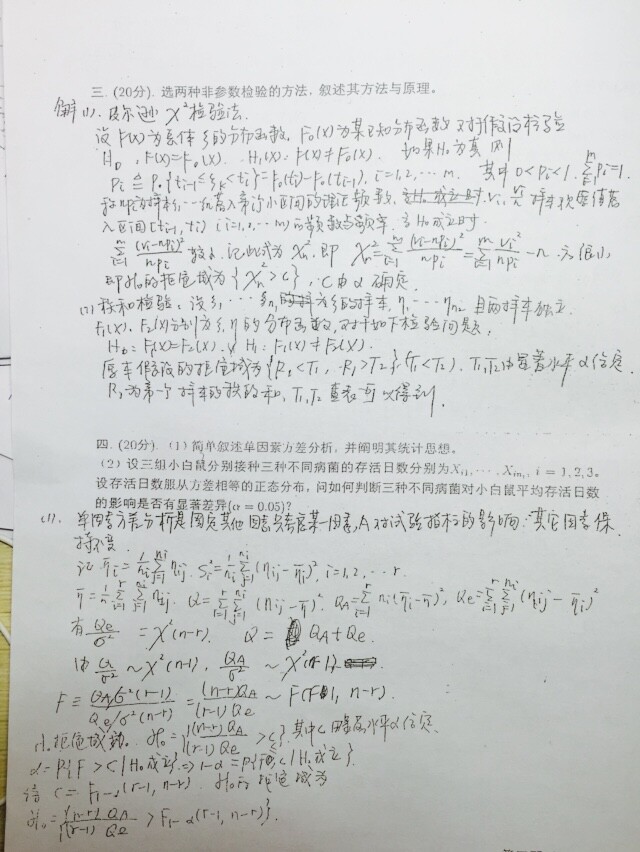 三. (20分). 选两种非参数检验的方法, 叙述其方法与原理。
解 (1). 皮尔逊 χ²检验法.
设 F(x)为总体ξ的分布函数, F₀(x)为某已知分布函数 对假设检验
H₀: F(x)=F₀(x). H₁(x): F(x)≠F₀(x). 如果H₀为真, 则
Pᵢ ≜ P₀{tᵢ₋₁≤ξₖ<tᵢ}=F₀(tᵢ)-F₀(tᵢ₋₁), i=1,2,…m. 其中 0<Pᵢ<1. Σᵢ₌₁ᵐPᵢ=1.
称nPᵢ为样本 落入第i个小区间的理论频数, vᵢ, vᵢ/n 样本
入区间[tᵢ₋₁, tᵢ) (i=1,2,…m)的频数与频率. 当H₀成立时
Σᵢ₌₁ᵐ (vᵢ-nPᵢ)²/nPᵢ 较小. 记此式为 χₙ², 即 χₙ²=Σᵢ₌₁ᵐ (vᵢ-nPᵢ)²/nPᵢ=Σᵢ₌₁ᵐ vᵢ²/nPᵢ - n. 很小,
即H₀的拒绝域为{χₙ²>c}, c由α确定.
(2) 秩和检验. 设ξ₁…ξₙ₁ 为ξ的样本, η₁…ηₙ₂ 且两样本独立.
F₁(x). F₂(x)分别为ξ, η的分布函数, 对于如下检验问题,
H₀: F₁(x)=F₂(x). H₁: F₁(x)≠F₂(x).
原假设的拒绝域为{R₁<T₁, R₁>T₂}, (T₁<T₂). T₁,T₂由显著水平α确定.
R₁为第一个样本的秩的和, T₁,T₂ 查表可以得到.
四. (20分). (1) 简单叙述单因素方差分析, 并阐明其统计思想。
(2) 设三组小白鼠分别接种三种不同病菌的存活日数分别为Xᵢ₁,⋯,Xᵢₙᵢ, i = 1,2,3。
设存活日数服从方差相等的正态分布, 问如何判断三种不同病菌对小白鼠平均存活日数
的影响是否有显著差异(α = 0.05)?
(1). 单因素方差分析是固定其他因素只考虑某一因素, A对试验指标的影响. 其它因素保
持不变.
记 η̄ᵢ=1/nᵢ Σⱼ₌₁ⁿⁱ ηᵢⱼ. Sᵢ²=1/nᵢ Σⱼ₌₁ⁿⁱ (ηᵢⱼ-η̄ᵢ)², i=1,2,…r.
η̄=1/n Σᵢ₌₁ʳ Σⱼ₌₁ⁿⁱ ηᵢⱼ. Q=Σᵢ₌₁ʳ Σⱼ₌₁ⁿⁱ (ηᵢⱼ-η̄)². Q_A=Σᵢ₌₁ʳ nᵢ(η̄ᵢ-η̄)², Qe=Σᵢ₌₁ʳ Σⱼ₌₁ⁿⁱ (ηᵢⱼ-η̄ᵢ)²
有 Qe/σ² = χ²(n-r). Q = Q_A+Qe.
由 Q/σ² ~ χ²(n-1), Q_A/σ² ~ χ²(r-1)
F ≡ Q_A/σ²(r-1) / Qe/σ²(n-r) = (n-r)Q_A/(r-1)Qe ~ F(r-1, n-r).
拒绝域 ℋ₀={(n-r)Q_A/(r-1)Qe >c}. 其中c由显著水平α确定.
α=P{F>c|H₀成立}⇒1-α=P{F≤c|H₀成立}.
得 c=F₁₋α(r-1, n-r). 拒绝域为
ℋ₀={(n-r)Q_A/(r-1)Qe > F₁₋α(r-1, n-r)}.